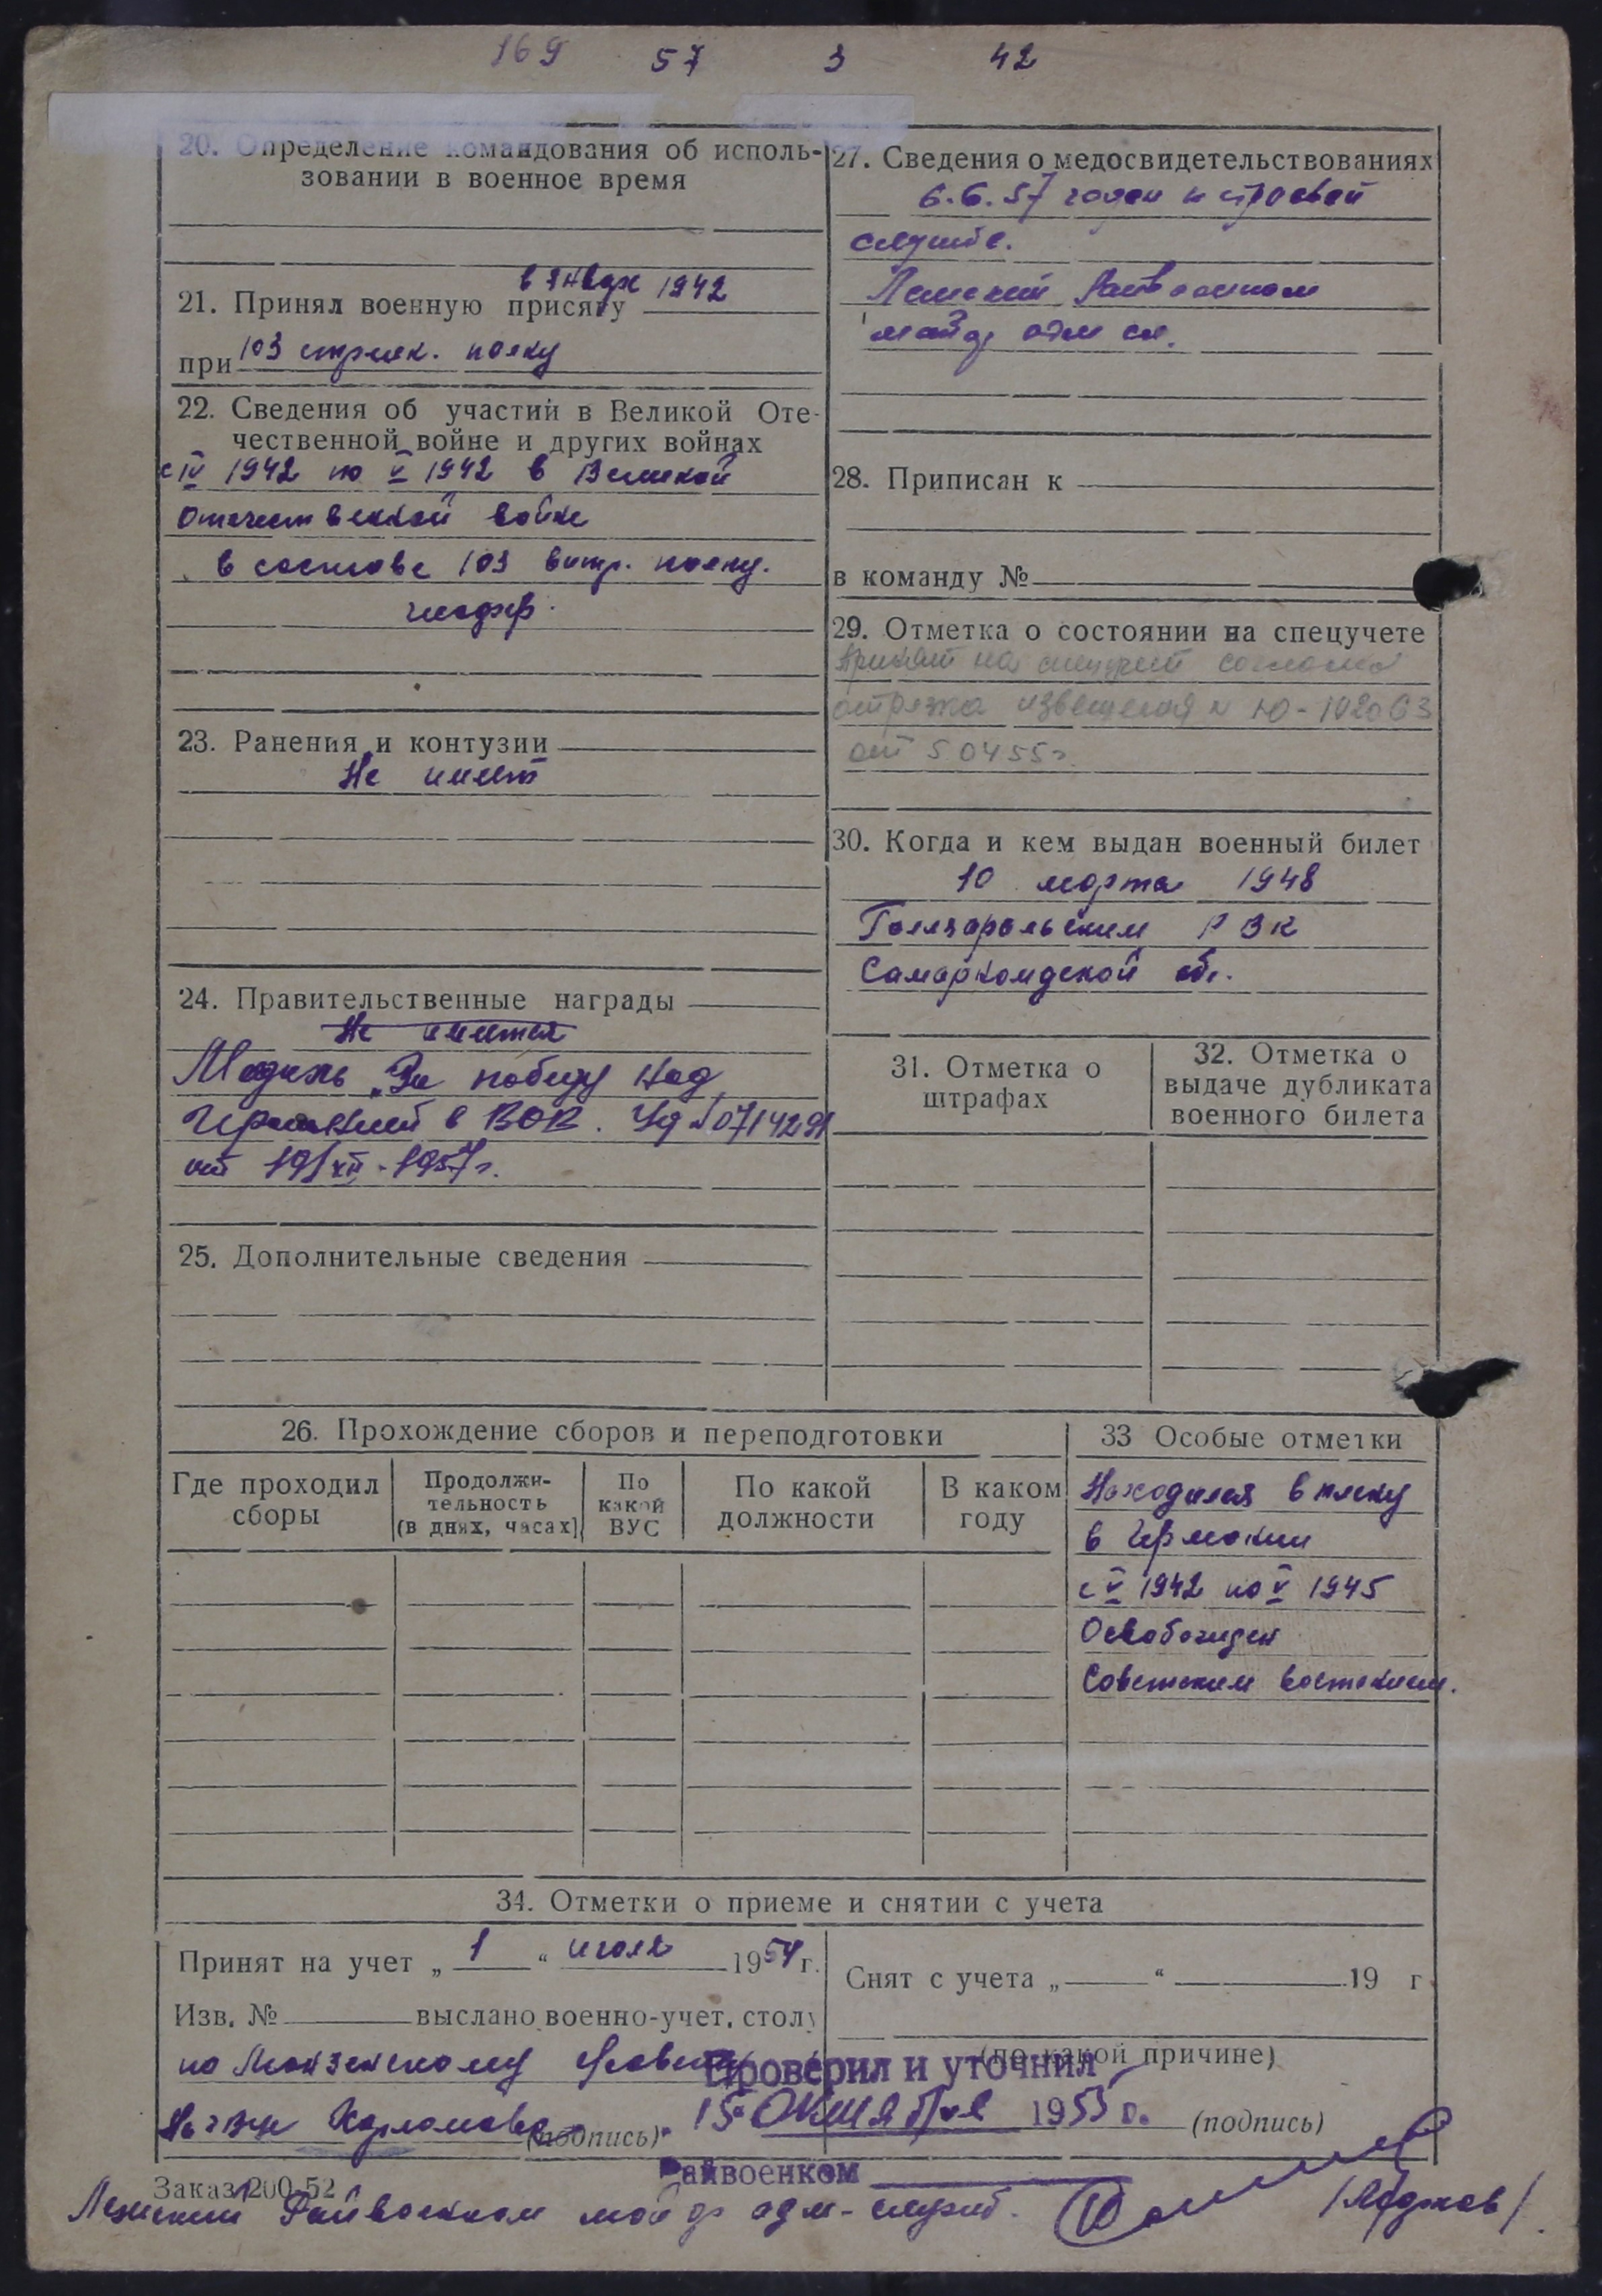 169 57 3 42
20. Определение командования об исполь-
зовании в военное время
21. Принял военную присягу в январе 1942
при 103 стрелк. полку
22. Сведения об участии в Великой Оте-
чественной войне и других войнах
с IV 1942 по V 1942 в Великой
Отечественной войне
в составе 103 стр. полку.
23. Ранения и контузии
Не имеет
24. Правительственные награды
Не имеется
Медаль „За победу над
Германией в ВОВ. Уд № 0714291
от 19/XII-1957г.
25. Дополнительные сведения
26. Прохождение сборов и переподготовки
Где проходил сборы
Продолжи-
тельность
(в днях, часах)
По
какой
ВУС
По какой
должности
В каком
году
27. Сведения о медосвидетельствованиях
6.6.57 годен к строевой
службе.
Райвоенком
майор адм сл.
28. Приписан к
в команду №
29. Отметка о состоянии на спецучете
Принят на спецучет согласно
отрезка извещения № Ю-192063
от 50455г.
30. Когда и кем выдан военный билет
10 марта 1948
РВК
Самаркандской обл.
31. Отметка о
штрафах
32. Отметка о
выдаче дубликата
военного билета
33 Особые отметки
Находился в плену
в Германии
с V 1942 по V 1945
Освобожден
Советским
34. Отметки о приеме и снятии с учета
Принят на учет „1“ июля 1954 г.
Изв. № выслано военно-учет. столу
по
(подпись)
Снят с учета „ “ 19 г
(по какой причине)
(подпись)
Проверил и уточнил
15 октября 1955 г.
Райвоенком
Заказ 200-52
Райвоенком майор адм-служб.